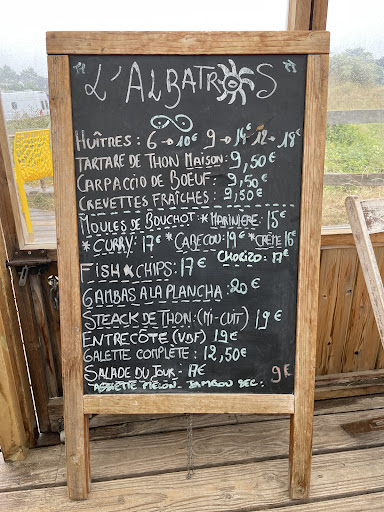 L'ALBATROS
HUÎTRES : 6 → 10€ 9 → 14€ 12 → 18€
TARTARE DE THON MAISON : 9,50€
CARPACCIO DE BOEUF : 9,50€
CREVETTES FRAÎCHES : 9,50€
MOULES DE BOUCHOT : * MARINIÈRE : 15€
* CURRY : 17€ * CABECOU : 19€ * CRÈME 16€
CHORIZO : 17€
FISH & CHIPS : 17€
GAMBAS A LA PLANCHA : 20€
STEACK DE THON : (MI-CUIT) 19€
ENTRECÔTE (VBF) 19€
GALETTE COMPLÈTE : 12,50€
SALADE DU JOUR - 17€ 9€
ASSIETTE MELON - JAMBON SEC :